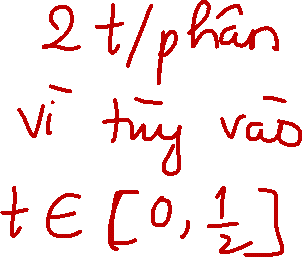 2 t/phân
vì tùy vào
t ∈ [0, 1/2]